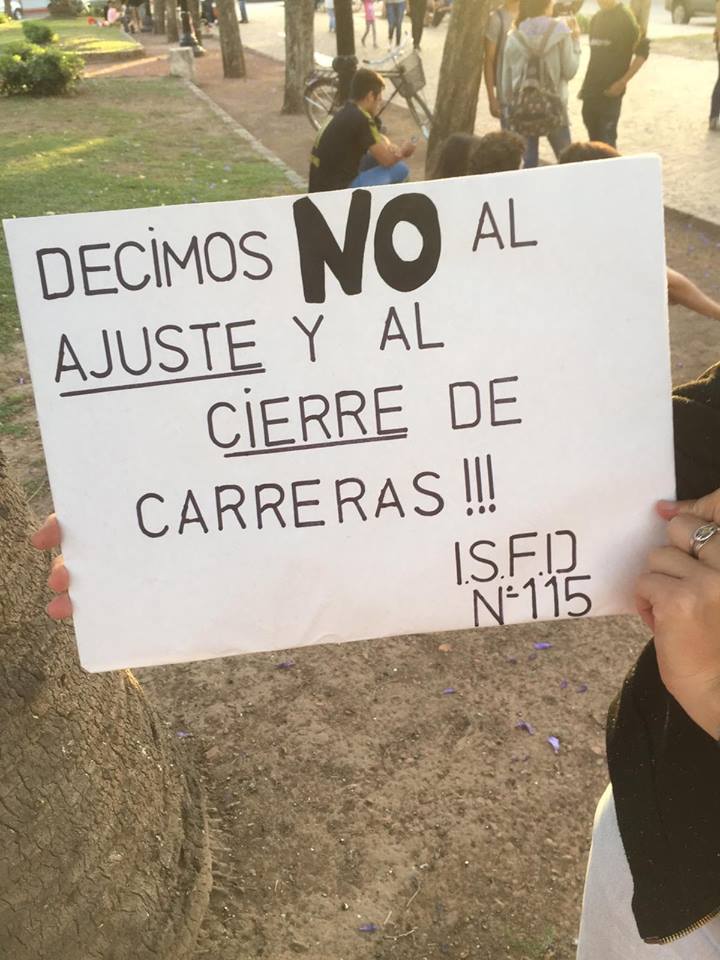 DECIMOS NO AL
AJUSTE Y AL
CIERRE DE
CARRERAS !!!
I.S.F.D
Nº115